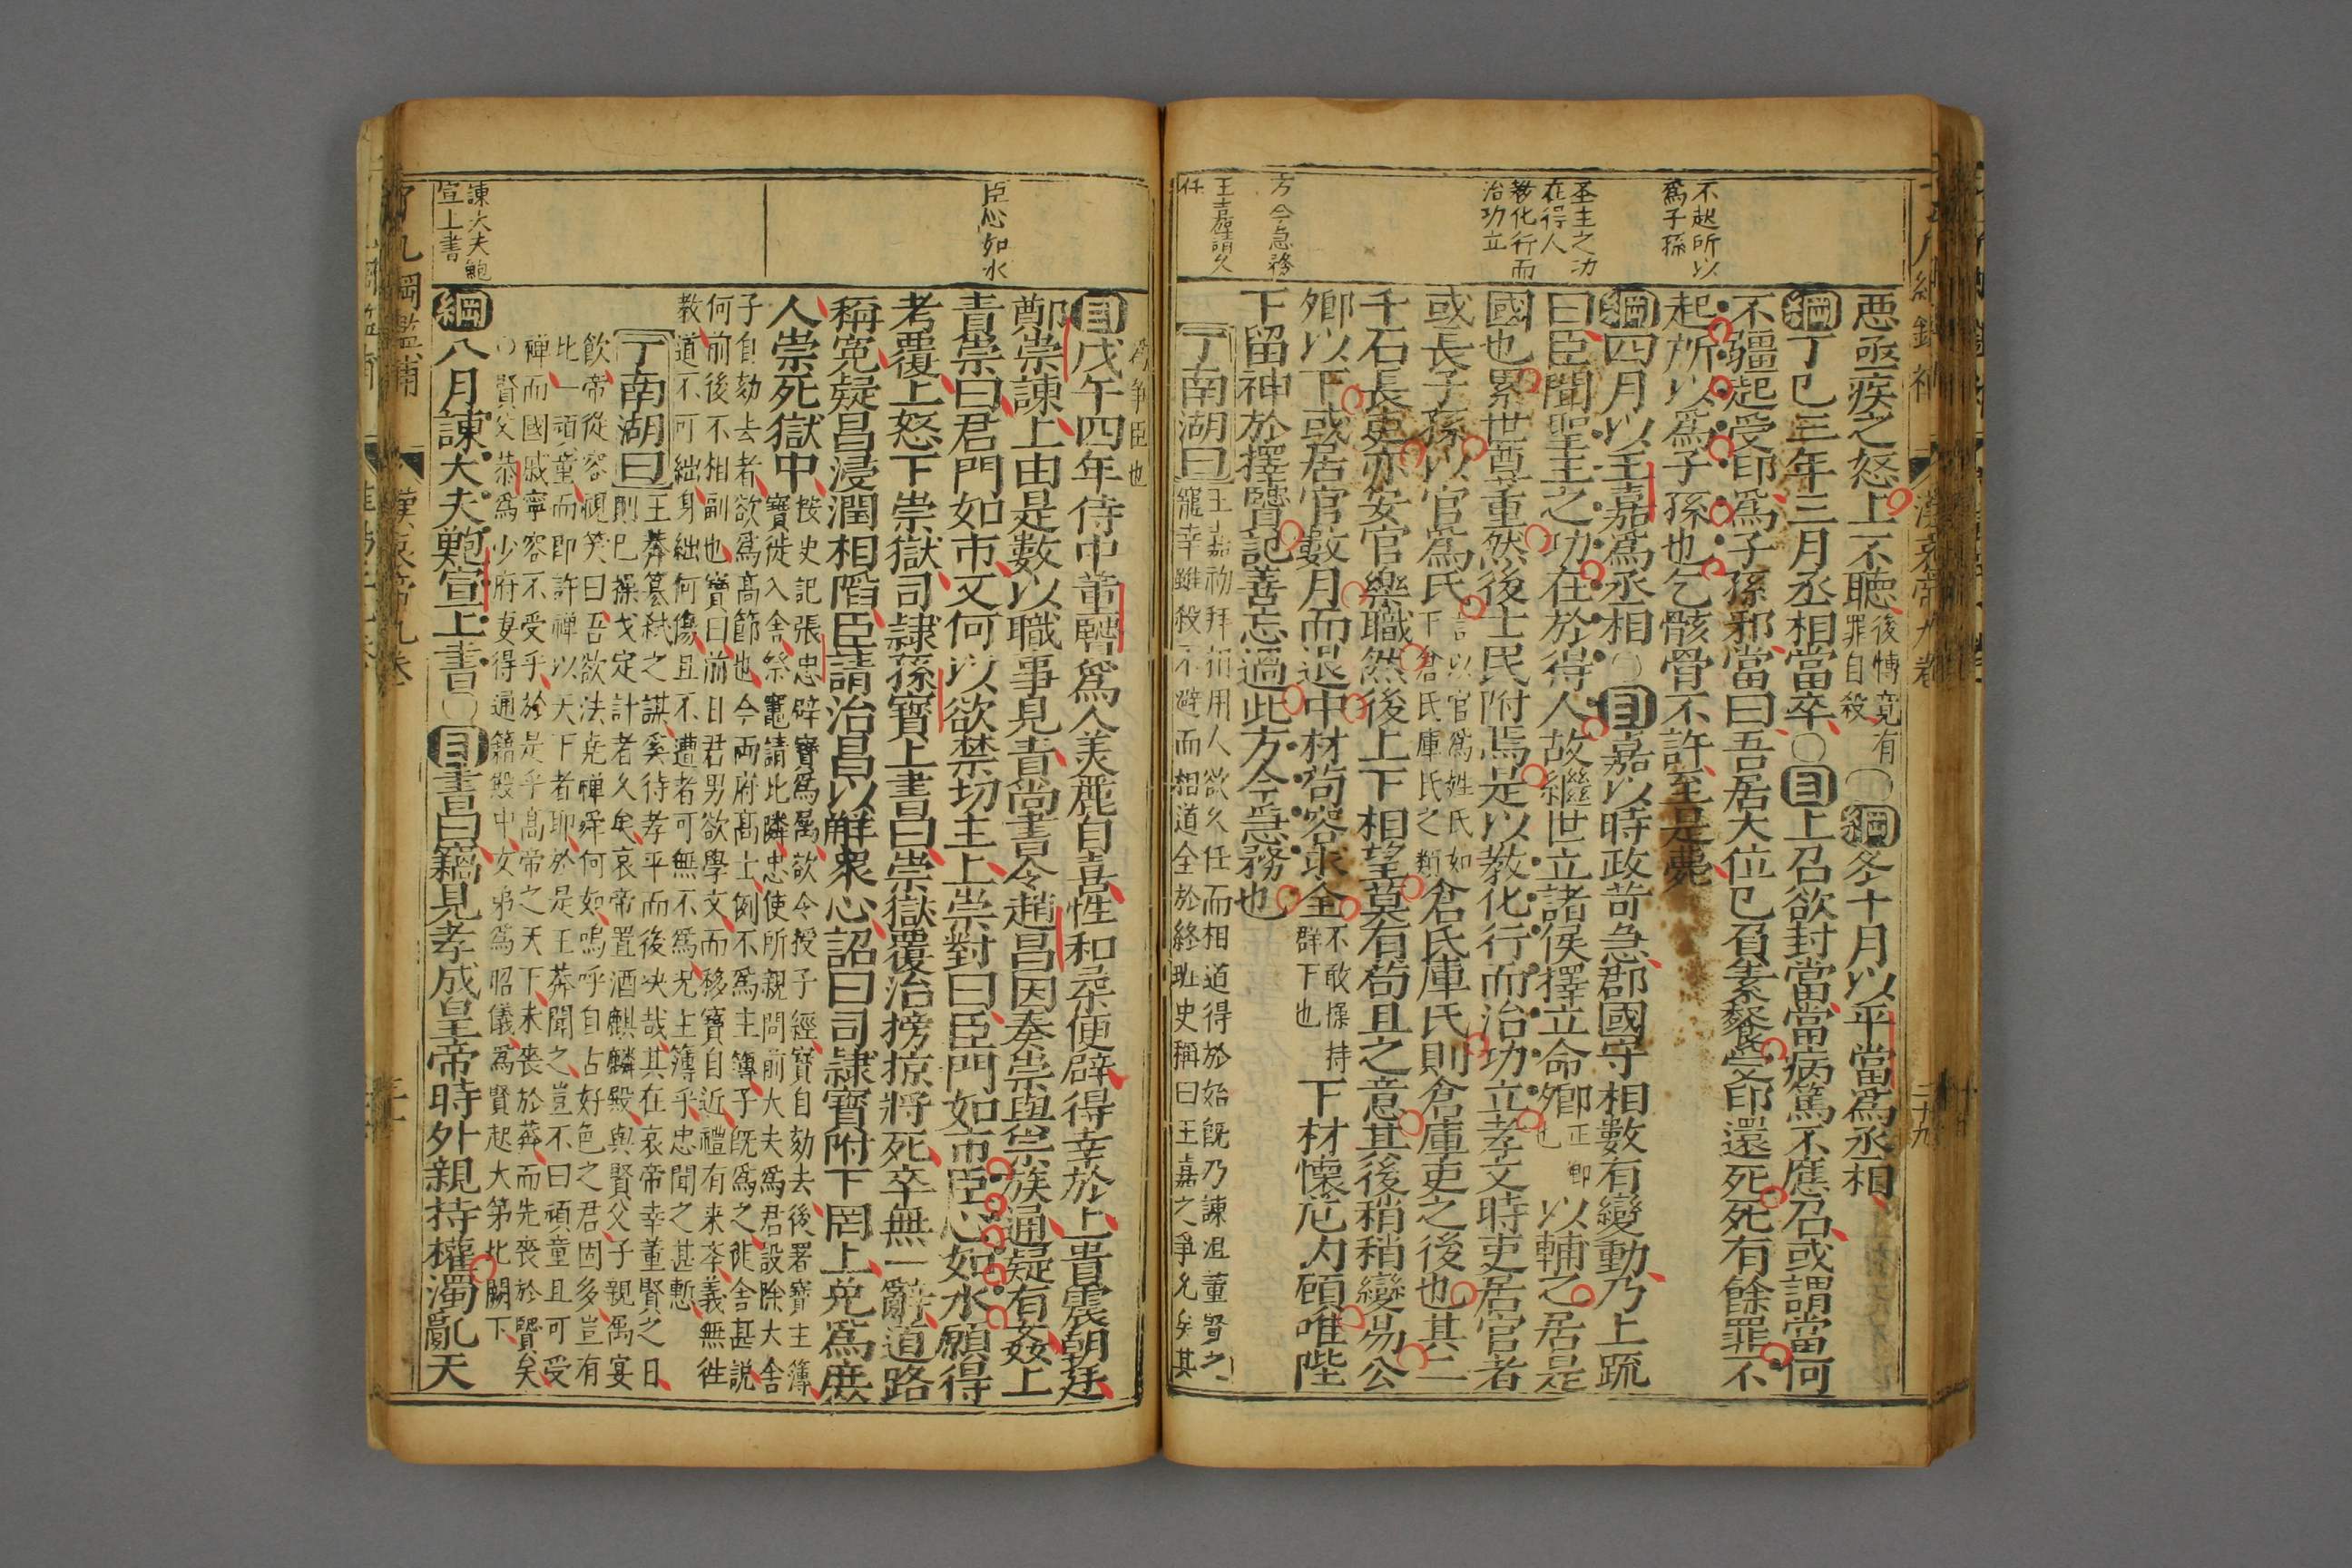 不起所以
爲子孫
圣主之功
在得人
教化行而
治功立
方今急務
王嘉請久
任
惡亟疾之怒上不聽後博竟有罪自殺〇綱冬十月以平當爲丞相
綱丁巳三年三月丞相當卒〇目上召欲封當當病篤不應召或謂當何
不彊起受印爲子孫邪當曰吾居大位已負素餐受印還死死有餘罪不
起所以爲子孫也乞骸骨不許至是薨
綱四月以王嘉爲丞相〇目嘉以時政苛急郡國守相數有變動乃上疏
曰臣聞聖王之功在於得人故繼世立諸侯擇立命卿以輔之居是
國也累世尊重然後士民附焉是以教化行而治功立孝文時吏居官者
或長子孫以官爲氏言以官爲姓氏如倉氏庫氏之類倉氏庫氏則倉庫吏之後也其二
千石長吏亦安官樂職然後上下相望莫有苟且之意其後稍稍變易公
卿以下或居官數月而退中材苟容求全不敢操持群下也下材懷危內顧唯陛
下留神於擇賢記善忘過此方今急務也
丁南湖曰王嘉初拜招用人欲久任而相道得於始旣乃諫沮董賢之
寵幸雖殺不避而相道全於終班史稱曰王嘉之爭允矣其
爲爭臣也
目戊午四年侍中董賢爲人美麗自喜性和柔便辟得幸於上貴震朝廷
鄭崇諫上由是數以職事見責尚書令趙昌因奏崇與宗族通疑有姦上
責崇曰君門如市又何以欲禁切主上崇對曰臣門如市臣心如水願得
考覆上怒下崇獄司隷孫寶上書曰崇獄覆治搒掠將死卒無一辭道路
稱寃疑昌浸潤相陷臣請治昌以解衆心詔曰司隷寶附下罔上免爲庶
人崇死獄中按史記張忠辟寶爲属欲令授子經寶自劾去後署寶主簿
寶徙入舍祭竈請比隣忠使所親問前大夫爲君設除大舍
子自劾去者欲爲高節也今両府高士例不爲主簿子旣爲之徙舍甚説
何前後不相副也寶曰前日君男欲學文而移寶自近禮有来斈義無徃
教道不可絀身絀何傷且不遭者可無不爲况主簿乎忠聞之甚慙
丁南湖曰王莽簒弑之謀奚待孝平而後决哉其在哀帝幸董賢之日
則巳操戈定計者久矣哀帝置酒麒麟殿與賢父子親屬宴
飲帝從容視笑曰吾欲法尭禅舜何如嗚呼自古好色之君固多豈有
比一頑童而即許禅以天下者耶於是王莽聞之豈不曰頑童且可受
禅而國戚寧容不受乎於是乎高帝之天下未䘮於莽而先䘮於賢矣
〇賢父恭爲少府妻得通籍殿中女弟爲昭儀爲賢起大第北闕下
綱八月諫大夫鮑宣上書〇目書曰竊見孝成皇帝時外親持權濁亂天
臣心如水
諫大夫鮑
宣上書
了凡綱鑑補
漢哀帝九卷